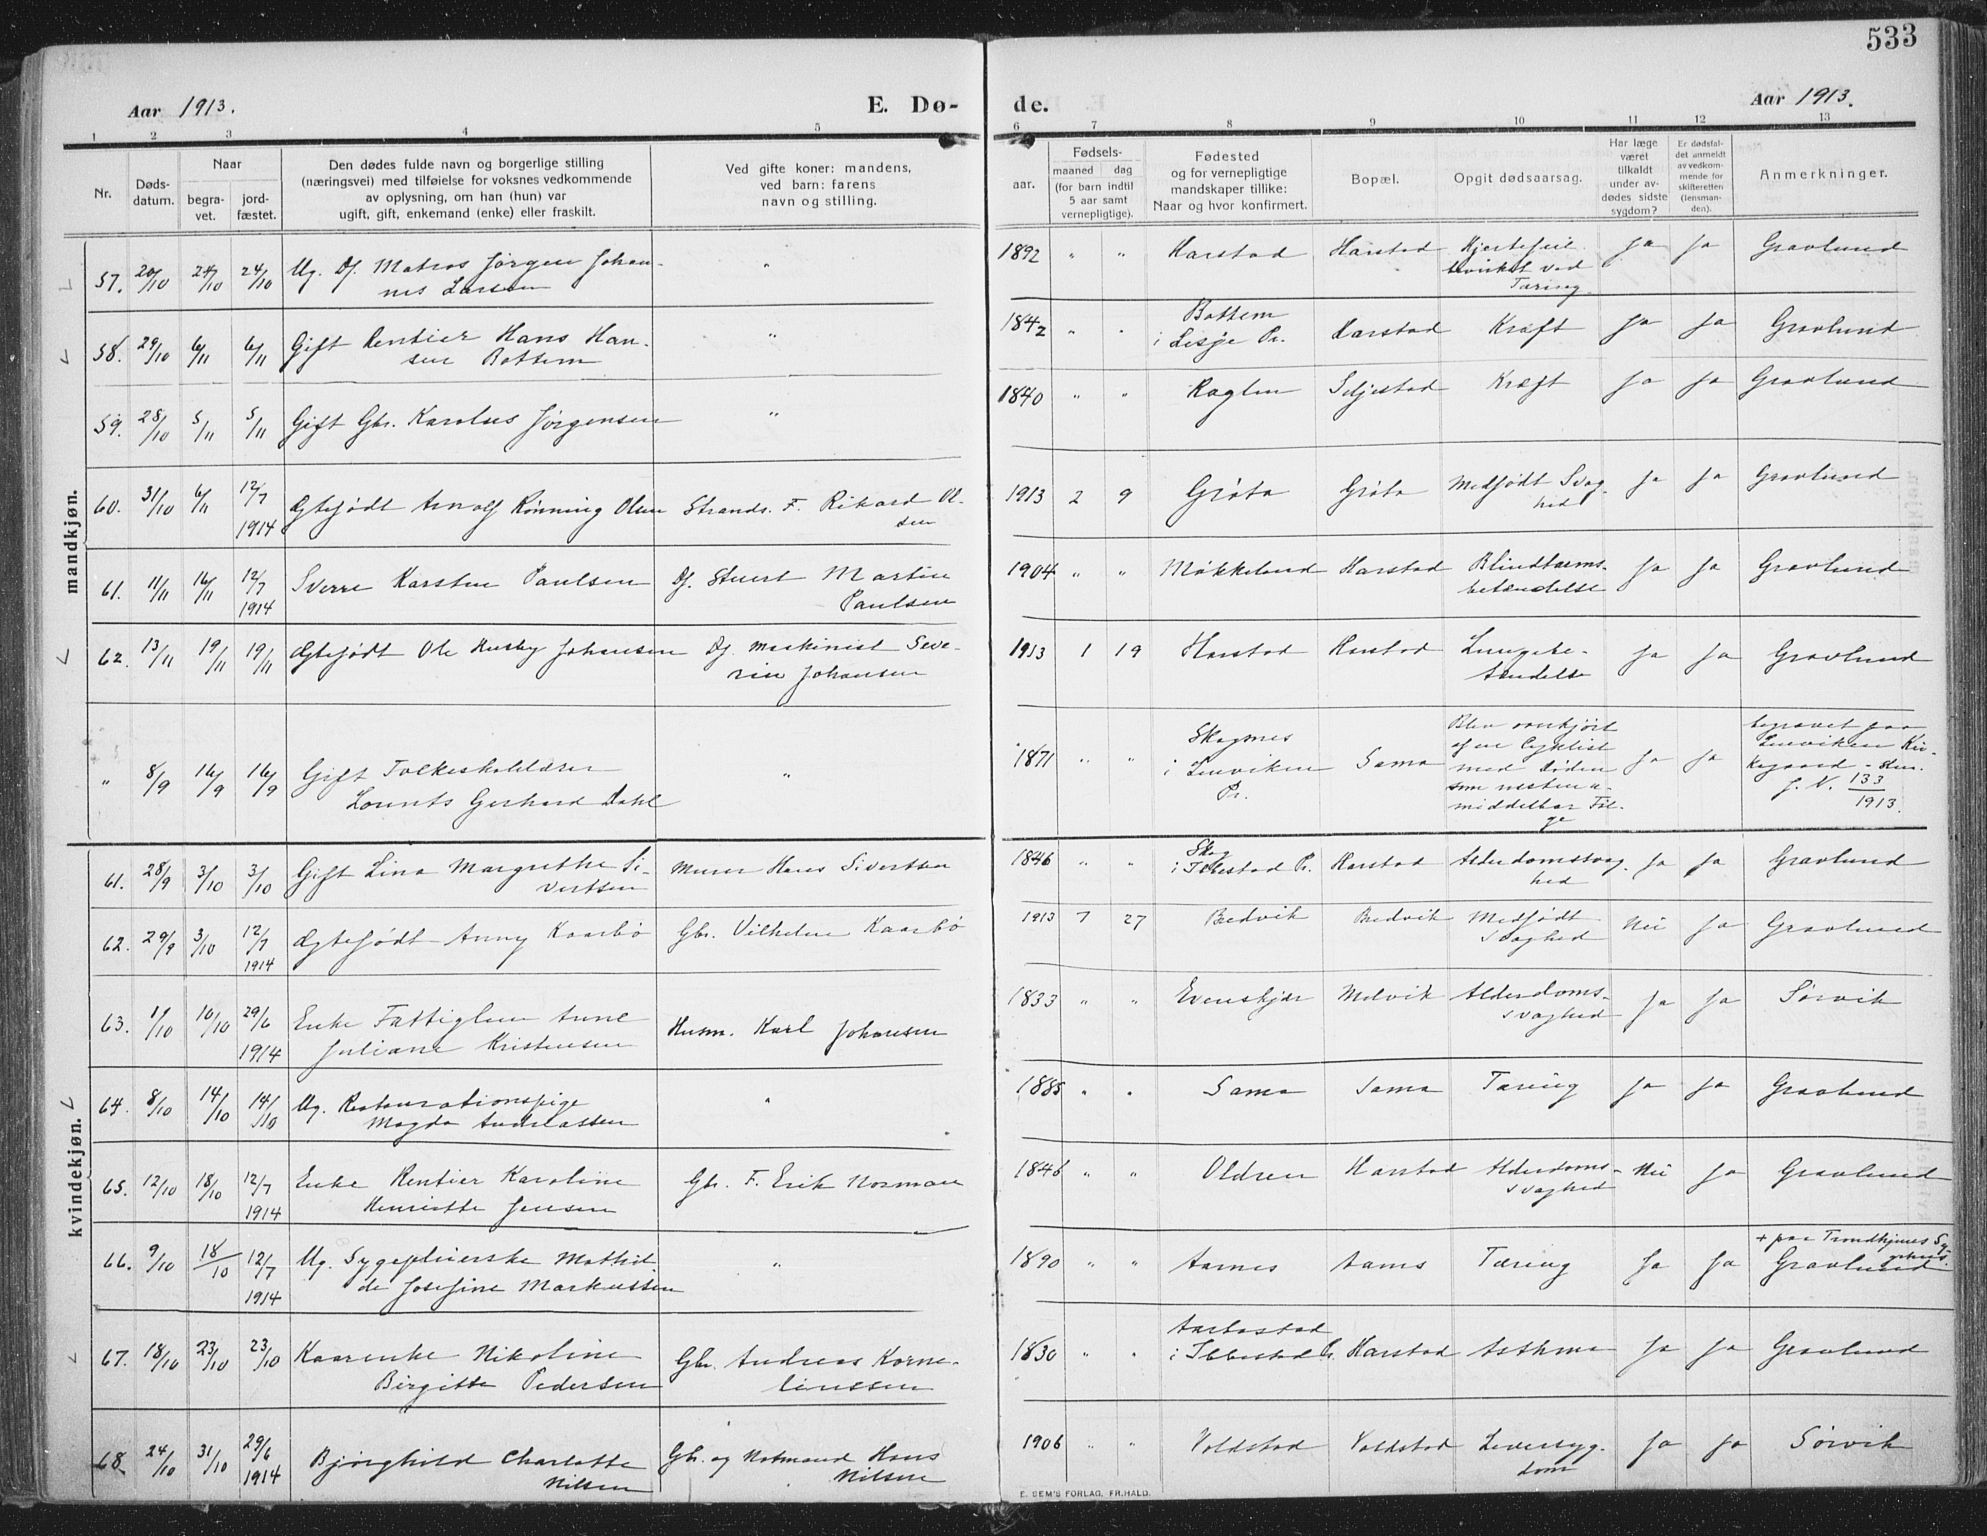 533
Aar 1913.
E. Dø-
de.
Aar 1913.
1 2 3 4 5 6 7 8 9 10 11 12 13
Nr.
Døds-
datum.
Naar
begra-
vet.
jord-
fæstet.
Den dødes fulde navn og borgerlige stilling
(næringsvei) med tilføielse for voksnes vedkommende
av oplysning, om han (hun) var
ugift, gift, enkemand (enke) eller fraskilt.
Ved gifte koner: mandens,
ved barn: farens
navn og stilling.
Fødsels-
aar.
maaned dag
(for barn indtil
5 aar samt
vernepligtige).
Fødested
og for vernepligtige
mandskaper tillike:
Naar og hvor konfirmert.
Bopæl.
Opgit dødsaarsag.
Har læge
været
tilkaldt
under av-
dødes sidste
sygdom?
Er dødsfal-
det anmeldt
av vedkom-
mende for
skifteretten
(lensman-
den).
Anmerkninger.
mandkjøn.
57. 20/10 24/10 24/10 Ug. Df. Matros Jørgen Johan-
nes Larsen " 1892 " " Harstad Harstad Hjertefeil
bevirket ved
Tæring Ja Ja Gravlund
58. 29/10 6/11 6/11 Gift Rentier Hans Han-
sen Bottem " 1842 " " Bottem
i Lesje Pr. Harstad Kræft Ja Ja Gravlund
59. 28/10 5/11 5/11 Gift Gbr. Karolus Jørgensen " 1840 " " Røglen Seljestad Kræft Ja Ja Gravlund
60. 31/10 6/11 12/7
1914 Ægtefødt Arnolf Rønning Olsen Strands. F. Rikard Ol-
sen 1913 2 9 Grøta Grøta Medfødt Svag-
hed Ja Ja Gravlund
61. 11/11 16/11 12/7
1914 Sverre Karsten Paulsen Df. Stuert Martin
Paulsen 1904 " " Møkkeland Harstad Blindtarms-
betændelse Ja Ja Gravlund
62. 13/11 19/11 19/11 Ægtefødt Ole Husby Johansen Df. Maskinist Seve-
rin Johansen 1913 1 19 Harstad Harstad Lungebe-
tændelse Ja Ja Gravlund
" 8/9 16/9 16/9 Gift Folkeskolelærer
Lorents Gerhard Dahl " 1871 " " Skognes
i Lenviken
Pr. Sama Blev overkjørt
af en Cyklist
med Døden
som nesten u-
middelbar Føl-
ge Ja Ja begravet paa
Lenviken Kir-
kegaard -
J. N. 133/1913.
kvindekjøn.
61. 28/9 3/10 3/10 Gift Lina Margrethe Si-
vertsen Murer Hans Sivertsen 1846 " " Skog
i Ibbestad Pr. Harstad Alderdomssvag-
hed Ja Ja Gravlund
62. 29/9 3/10 12/7
1914 Ægtefødt Anny Kaarbø Gbr. Vilhelm Kaarbø 1913 7 27 Bredvik Bredvik Medfødt
Svaghed Nei Ja Gravlund
63. 1/10 10/10 29/6
1914 Enke Fattiglem Anne
Juliane Kristensen Husm. Karl Johansen 1833 " " Evenskjær Melvik Alderdoms-
svaghed Ja Ja Sørvik
64. 8/10 14/10 14/10 Ug. Restaurationspige
Magda Andreassen " 1885 " " Sama Sama Tæring Ja Ja Gravlund
65. 12/10 18/10 12/7
1914 Enke Rentier Karoline
Henriette Jensen Gbr. F. Erik Norman 1846 " " Oldren Harstad Alderdoms-
svaghed Nei Ja Gravlund
66. 9/10 18/10 12/7
1914 Ug. Sygepleierske Mathil-
de Josefine Markussen " 1890 " " Aarnes Aarnes Tæring Ja Ja + paa Trondhjems Sy-
gehus.
Gravlund
67. 18/10 23/10 23/10 Kaarenke Nikoline
Birgitte Pedersen Gbr. Andreas Korne-
liussen 1830 " " Aarbostad
i Ibbestad Pr. Harstad Asthma Ja Ja Gravlund
68. 24/10 31/10 29/6
1914 Bjørghild Charlotte
Nilsen Gbr. og Notmand Hans
Nilsen 1906 " " Voldstad Voldstad Leversyg-
dom Ja Ja Sørvik
E. SEM'S FORLAG, FR.HALD.